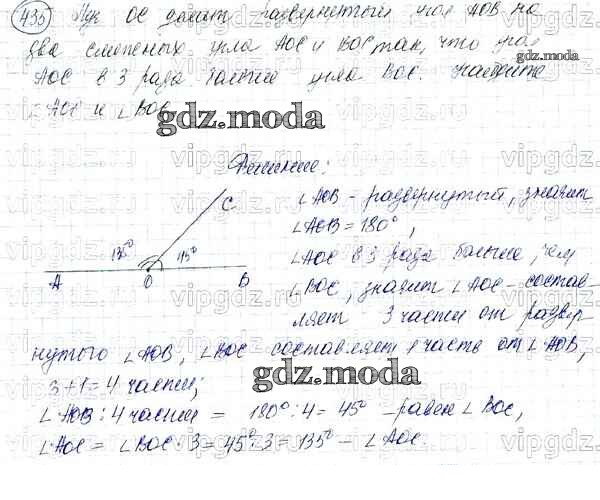 435 Луч ОС делит развернутый угол АОВ на
два смежных угла АОС и ВОС так, что угол
АОС в 3 раза больше угла ВОС. Найдите
АОС и ∠ВОС
gdz.moda
gdz.moda
Решение:
∠АОВ - развернутый, значит
∠АОВ = 180°,
∠АОС в 3 раза больше, чем
∠ВОС, значит ∠АОС - состав-
ляет 3 части от развер-
С
135° 45°
А О В
нутого ∠АОВ, ∠ВОС составляет 1 часть от ∠АОВ,
3+1=4 части;
gdz.moda
∠АОВ : 4 части = 180° : 4 = 45° - равен ∠ВОС,
∠АОС = ∠ВОС · 3 = 45° · 3 = 135° - ∠АОС.
vipgdz.ru